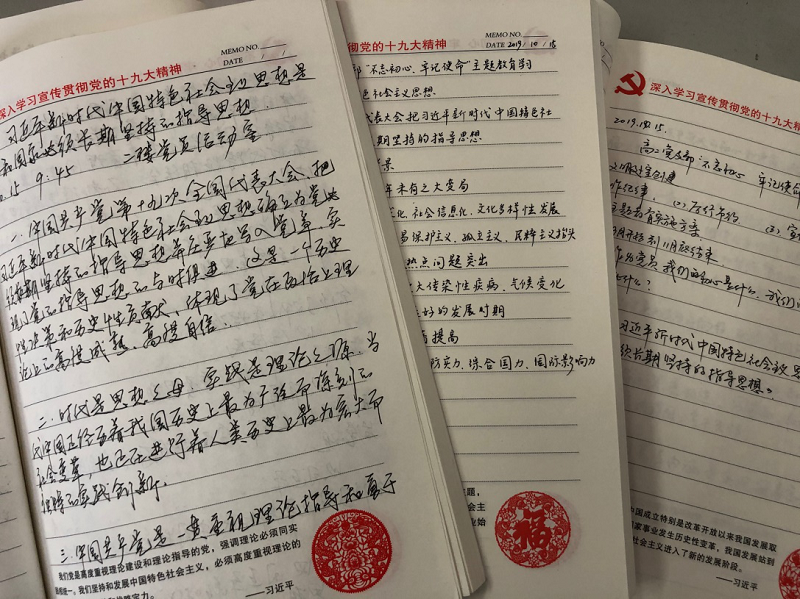 MEMO NO.
DATE / /
深入学习宣传贯彻党的十九大精神
习近平新时代中国特色社会主义思想是
和国家必须长期坚持的指导思想
.15 9:45 二楼党员活动室
一、中国共产党第十九次全国代表大会，把
习近平新时代中国特色社会主义思想确立为党必
须长期坚持的指导思想并庄严地写入党章，实
现了党的指导思想的与时俱进。这是一个历史
性决策和历史性贡献，体现了党在政治上理
论上的高度成熟、高度自信。
二、时代是思想之母，实践是理论之源。当
代中国正经历着我国历史上最为广泛而深刻的
社会变革，也正在进行着人类历史上最为宏大而
独特的实践创新。
三、中国共产党是一贯重视理论指导和勇于
我们党是高度重视理论建设和理论指导的党，强调理论必须同实
践相统一。我们坚持和发展中国特色社会主义，必须高度重视理论的
——习近平
MEMO NO.
DATE 2019 / 10 / 15
贯彻党的十九大精神
"不忘初心、牢记使命"主题教育
色社会主义思想
代表大会把习近平新时代中国特色社
期坚持的指导思想
景
年未有之大变局
化、社会信息化、文化多样性发展
易保护主义、孤立主义、民粹主义抬头
热点问题突出
大传染性疾病、气候变化
好的发展时期
提高
防实力、综合国力、国际影响力
福
深入学习宣传贯彻党的十九大
2019.10.15.
高二党支部 不忘初心 牢记使命
(2) 厉行节约 (3)
主题教育实施方案
月开始到11月底结束
作为党员 我们的初心是什么，我们
什么？
习近平新时代中国特色社会主义思
须长期坚持的指导思想。
中国成立特别是改革开放以来我国发展取
家事业发生历史性变革，我国发展站到
社会主义进入了新的发展阶段。
——习近平